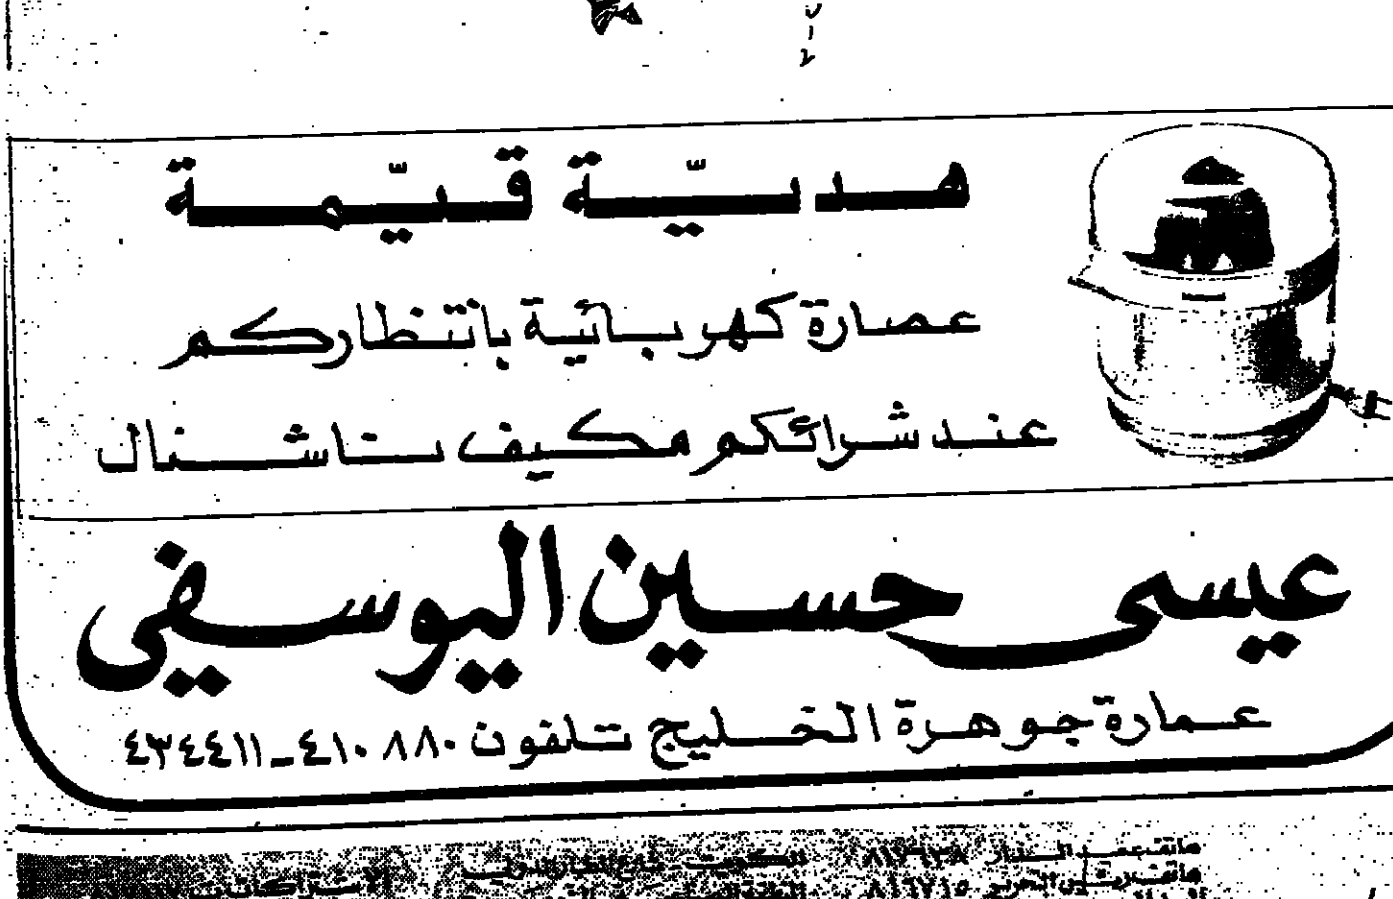 هديّة قيّمة
عصارة كهربائية بانتظاركم
عند شرائكم مكيف ناشنال
عيسى حسين اليوسفي
عمارة جوهرة الخليج تلفون ٤١٠٨٨٠ـ٤٣٤٤١١